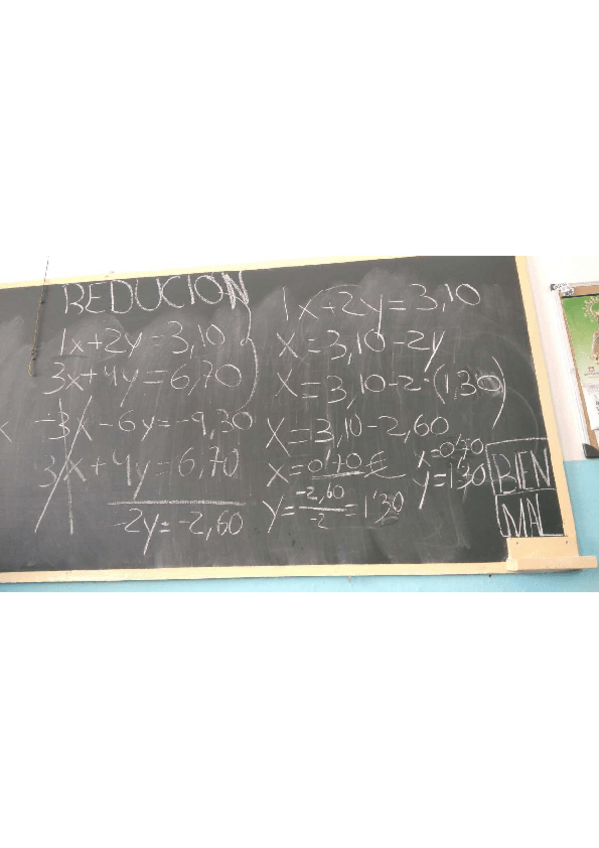 REDUCION
1x+2y=3,10
3x+4y=6,70
-3x-6y=-9,30
3x+4y=6,70
-2y=-2,60
1x+2y=3,10
x=3,10-2y
x=3,10-2·(1,30)
x=3,10-2,60
x=0'70€
y=-2,60/-2=1'30
x=0'70
y=1'30
BIEN
MAL